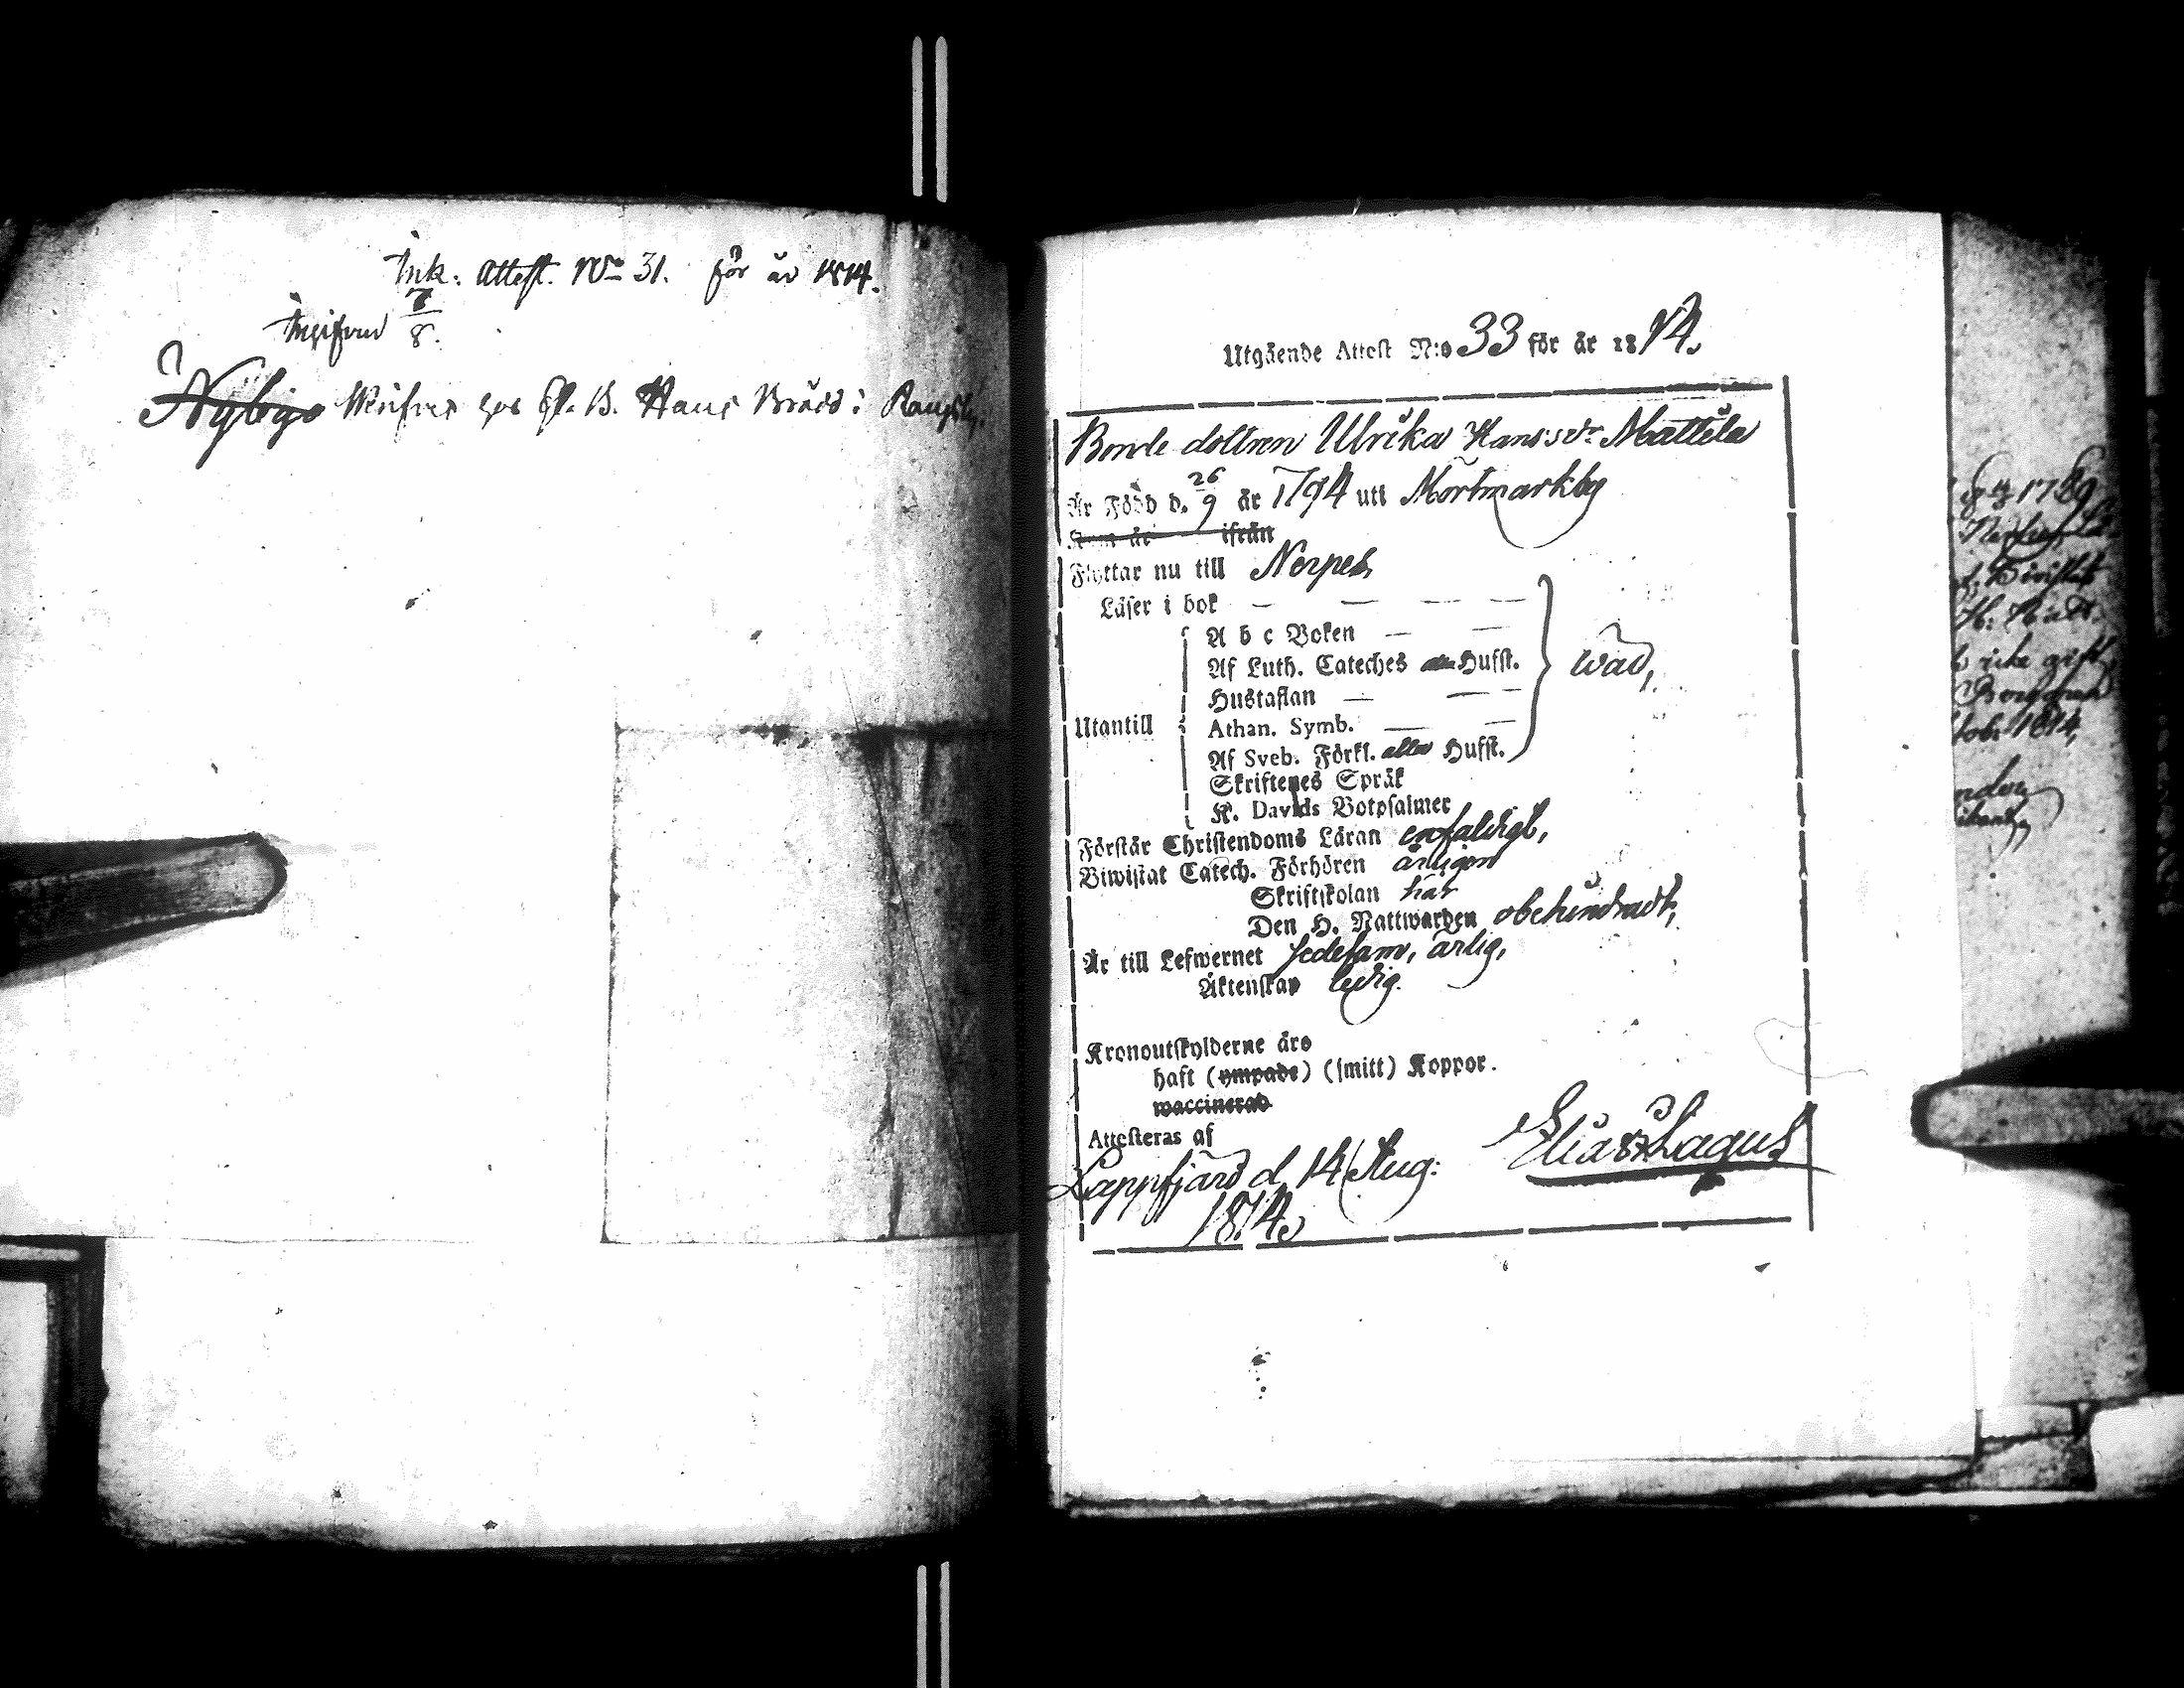 Ink. Attest. No 31. för år 1814.
7
8.
Hans i
Utgående Attest N:o 33 för år 1814.
Bonde dottren Ulrika Hansdr Mattila
Är Född d. 26/9 år 1794 uti Mörtmarkby
Kom år ifrån
Flyttar nu till Nerpes,
Läser i bok — — — —
A b c Boken — —
Af Luth. Cateches Husst.
Hustaflan — — —
Utantill
Athan. Symb. — —
Af Sveb. Förkl. alla Husst.
wäl,
Skriftenes Språk
K. Davids Botpsalmer
Förstår Christendoms Läran enfaldigt,
Biwistat Catech. Förhören årligen
Skriftskolan här
Den H. Nattwarden obehindradt,
Är till Lefwernet sedesam, ärlig,
Äktenskap ledig.
Kronoutskylderne äro
haft (ympade) (smitt) Koppor.
waccinerad
Attesteras af
Elias Lagus
Lappfjärd d. 14 Aug:
1814.
1789
icke gift,
1814,